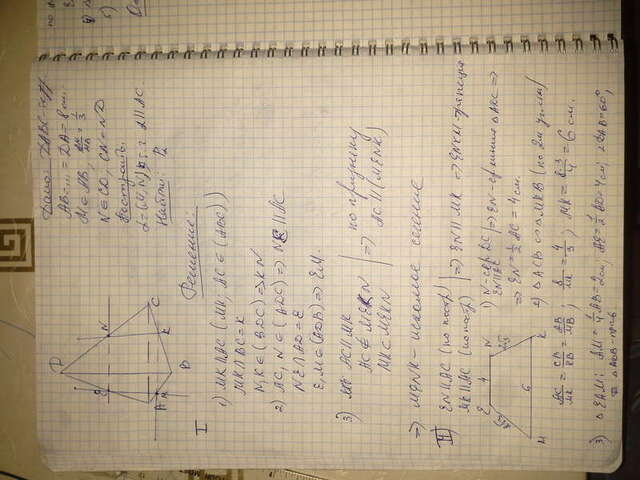 Дано: DABC-тетр.
AB=...=DA=8см.
M∈AB, BM/MA=3/1
N∈CD, CN=ND
Построить
α=(M;N), α∥AC.
Найти: P
D
E
N
A
M
B
K
C
Решение:
I
1) MK∥AC (MK, AC ∈ (ABC))
MK∩BC=K
N,K∈(BDC)⇒KN
2) AC, N∈(ADC)⇒NE∥AC
NE∩AD=E
E,M∈(ADB)⇒EM.
3) AC∥MK
AC⊄MEKN
MK⊂MEKN
⇒ по признаку
AC∥(MENK)
⇒ MENK - искомое сечение
II) EN∥AC (по постр)
MK∥AC (по постр)
⇒EN∥MK ⇒ENKM-трапеция
1) N-сер. DC
EN∥AC
⇒EN-ср линия ΔADC⇒
⇒ EN=1/2 AC=4см.
E
N
4
6
M
K
2) ΔACB∽ΔMKB (по 2м углам)
AC/MK=CB/KB=AB/MB; 8/MK=4/3; MK=8·3/4=6см.
3) ΔEAM: AM=1/4AB=2см, AE=1/2AD=4см; ∠DAB=60°,
ΔADB-прав